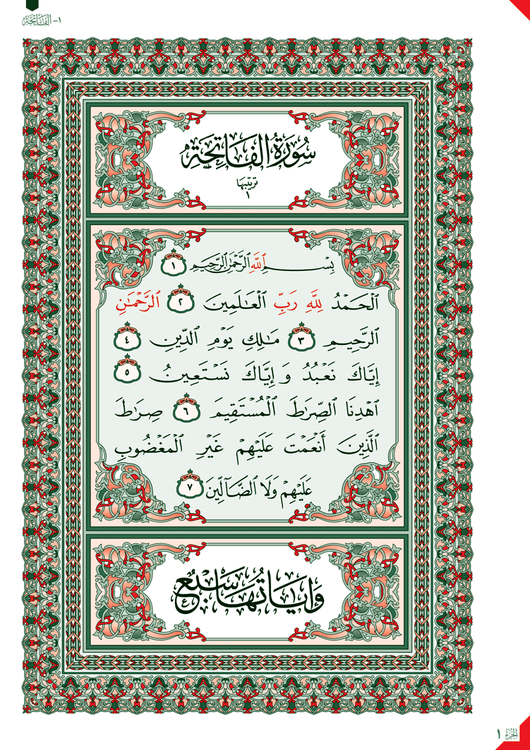 ١- الفَاتِحَة
سُورَةُ الفَاتِحَةِ
تَرْتِيبُهَا
١
بِسْمِ ٱللَّهِ ٱلرَّحْمَٰنِ ٱلرَّحِيمِ ١
ٱلْحَمْدُ لِلَّهِ رَبِّ ٱلْعَٰلَمِينَ ٢ ٱلرَّحْمَٰنِ
ٱلرَّحِيمِ ٣ مَٰلِكِ يَوْمِ ٱلدِّينِ ٤
إِيَّاكَ نَعْبُدُ وَإِيَّاكَ نَسْتَعِينُ ٥
ٱهْدِنَا ٱلصِّرَٰطَ ٱلْمُسْتَقِيمَ ٦ صِرَٰطَ
ٱلَّذِينَ أَنْعَمْتَ عَلَيْهِمْ غَيْرِ ٱلْمَغْضُوبِ
عَلَيْهِمْ وَلَا ٱلضَّآلِّينَ ٧
وَآيَاتُهَا سَبْعٌ
الجُزْءُ ١